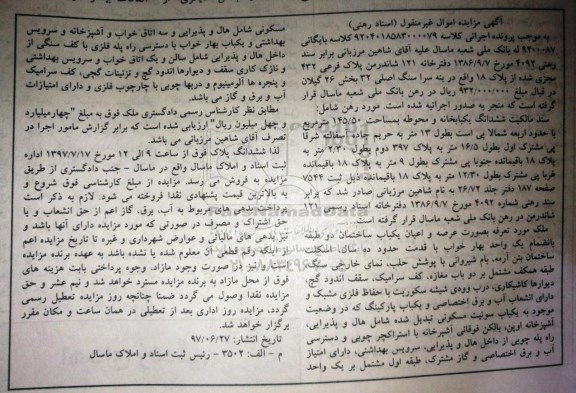 آگهی مزایده اموال غیرمنقول (اسناد رهنی)
به موجب پرونده اجرائی کلاسه ۹۲۰۴۰۱۸۵۸۳۰۰۰۰۷۹ کلاسه بایگانی
۹۲۰۰۰۸۷ له بانک ملی شعبه ماسال علیه آقای شاهین مرزبانی برابر سند
رهنی ۴۰۹۲ مورخ ۱۳۸۶/۹/۷ دفترخانه ۱۲۱ شاندرمن پلاک فرعی ۴۳۲
مجزی شده از پلاک ۱۸ واقع در بنه سرا سنگ اصلی ۳۲ بخش ۲۶ گیلان
در قبال مبلغ ۹۳۲/۰۰۰/۰۰۰ ریال در رهن بانک ملی شعبه ماسال قرار
گرفته است که منجر به صدور اجرائیه شده است. مورد رهن شامل:
سند مالکیت ششدانگ یکبابخانه و محوطه بمساحت ۱۴۵/۵۰ مترمربع
با حدود اربعه شمالا پی است بطول ۱۳ متر به حریم جاده آسفالته شرقا
پی مشترک اول بطول ۱۶/۵ متر به پلاک ۳۹۷ دوم بطول ۲/۳۰ متر به
پلاک ۱۸ باقیمانده جنوبا پی مشترک بطول ۹ متر به پلاک ۱۸ باقیمانده
غربا پی مشترک بطول ۱۲/۳۰ متر به پلاک ۱۸ باقیمانده ذیل ثبت ۷۵۴۴
صفحه ۱۸۷ دفتر جلد ۲۶/۷۲ به نام شاهین مرزبانی صادر شد که برابر
سند رهنی شماره ۴۰۹۲ مورخ ۱۳۸۶/۹/۷ دفترخانه اسناد رسمی ۱۲۱
شاندرمن در رهن بانک ملی شعبه ماسال قرار گرفته است.
ملک مورد تعرفه بصورت عرصه و اعیان یکباب ساختمان دو طبقه
بانضمام یک واحد بهار خواب با قدمت حدود ده سال، اسکلت
ساختمان بتن آرمه، بام شیروانی با پوشش حلب، نمای خارجی سنگ
طبقه همکف مشتمل بر دو باب مغازه، کف سرامیک، سقف اندود گچ،
دیوارها کاشیکاری، درب وردی شیشه سکوریت با حفاظ فلزی مشبک و
دارای انشعاب آب و برق اختصاصی و یکباب پارکینگ که در وضعیت
موجود به یکباب سوئیت مسکونی تبدیل شده شامل هال و پذیرایی،
آشپزخانه اوپن، بالکن فوقانی آشپرخانه با استراکچر چوبی و دسترسی
راه پله چوبی از داخل هال و پذیرایی، سرویس بهداشتی، دارای امتیاز
آب و برق اختصاصی و گاز مشترک، طبقه اول مشتمل بر یک واحد
مسکونی شامل هال و پذیرایی و سه اتاق خواب و آشپزخانه و سرویس
بهداشتی و یکباب بهار خواب با دسترسی راه پله فلزی با کف سنگی از
داخل هال و پذیرایی شامل سالن و یک اتاق خواب و سرویس بهداشتی
و نازک کاری سقف و دیوارها اندود گچ و تزئینات گچی، کف سرامیک
و پنجره ها آلومینیوم و دربها چوبی با چارچوب فلزی و دارای امتیازات
آب و برق و گاز می باشد.
مطابق نظر کارشناس رسمی دادگستری ملک فوق به مبلغ "چهارمیلیارد
و چهل میلیون ریال" ارزیابی شده است که برابر گزارش مامور اجرا در
تصرف آقای شاهین مرزبانی می باشد.
لذا ششدانگ پلاک فوق از ساعت ۹ الی ۱۲ مورخ ۱۳۹۷/۷/۱۷ اداره
ثبت اسناد و املاک ماسال واقع در ماسال - جنب دادگستری از طریق
مزایده به فروش می رسد. مزایده از مبلغ کارشناسی فوق شروع و
به بالاترین قیمت پیشنهادی نقدا فروخته می شود: لازم به ذکر است
پرداخت بدهی های مربوط به آب، برق، گاز اعم از حق انشعاب و یا
حق اشتراک و مصرف در صورتی که مورد مزایده دارای آنها باشد و
نیز بدهی های مالیاتی و عوارض شهرداری و غیره تا تاریخ مزایده اعم
از اینکه رقم قطعی آن معلوم شده یا نشده باشد به عهده برنده مزایده
است و نیز در صورت وجود مازاد، وجوه پرداختی بابت هزینه های
فوق از محل مازاد به برنده مزایده مسترد خواهد شد و نیم عشر و حق
مزایده نقدا وصول می گردد ضمنا چنانچه روز مزایده تعطیل رسمی
گردد، مزایده روز اداری بعد از تعطیلی در همان ساعت و مکان مقرر
برگزار خواهد شد.
تاریخ انتشار: ۹۷/۰۶/۲۷
م - الف: ۳۵۰۲ - رئیس ثبت اسناد و املاک ماسال